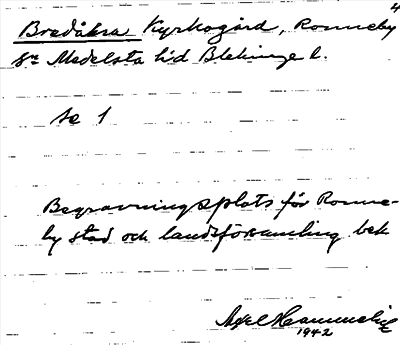 4
Bredåkra Kyrkogård, Ronneby
sn Medelsta hd Blekinge l.
se 1
Begravningsplats för Ronne-
by stad och landsförsamling bek
Axel
1942